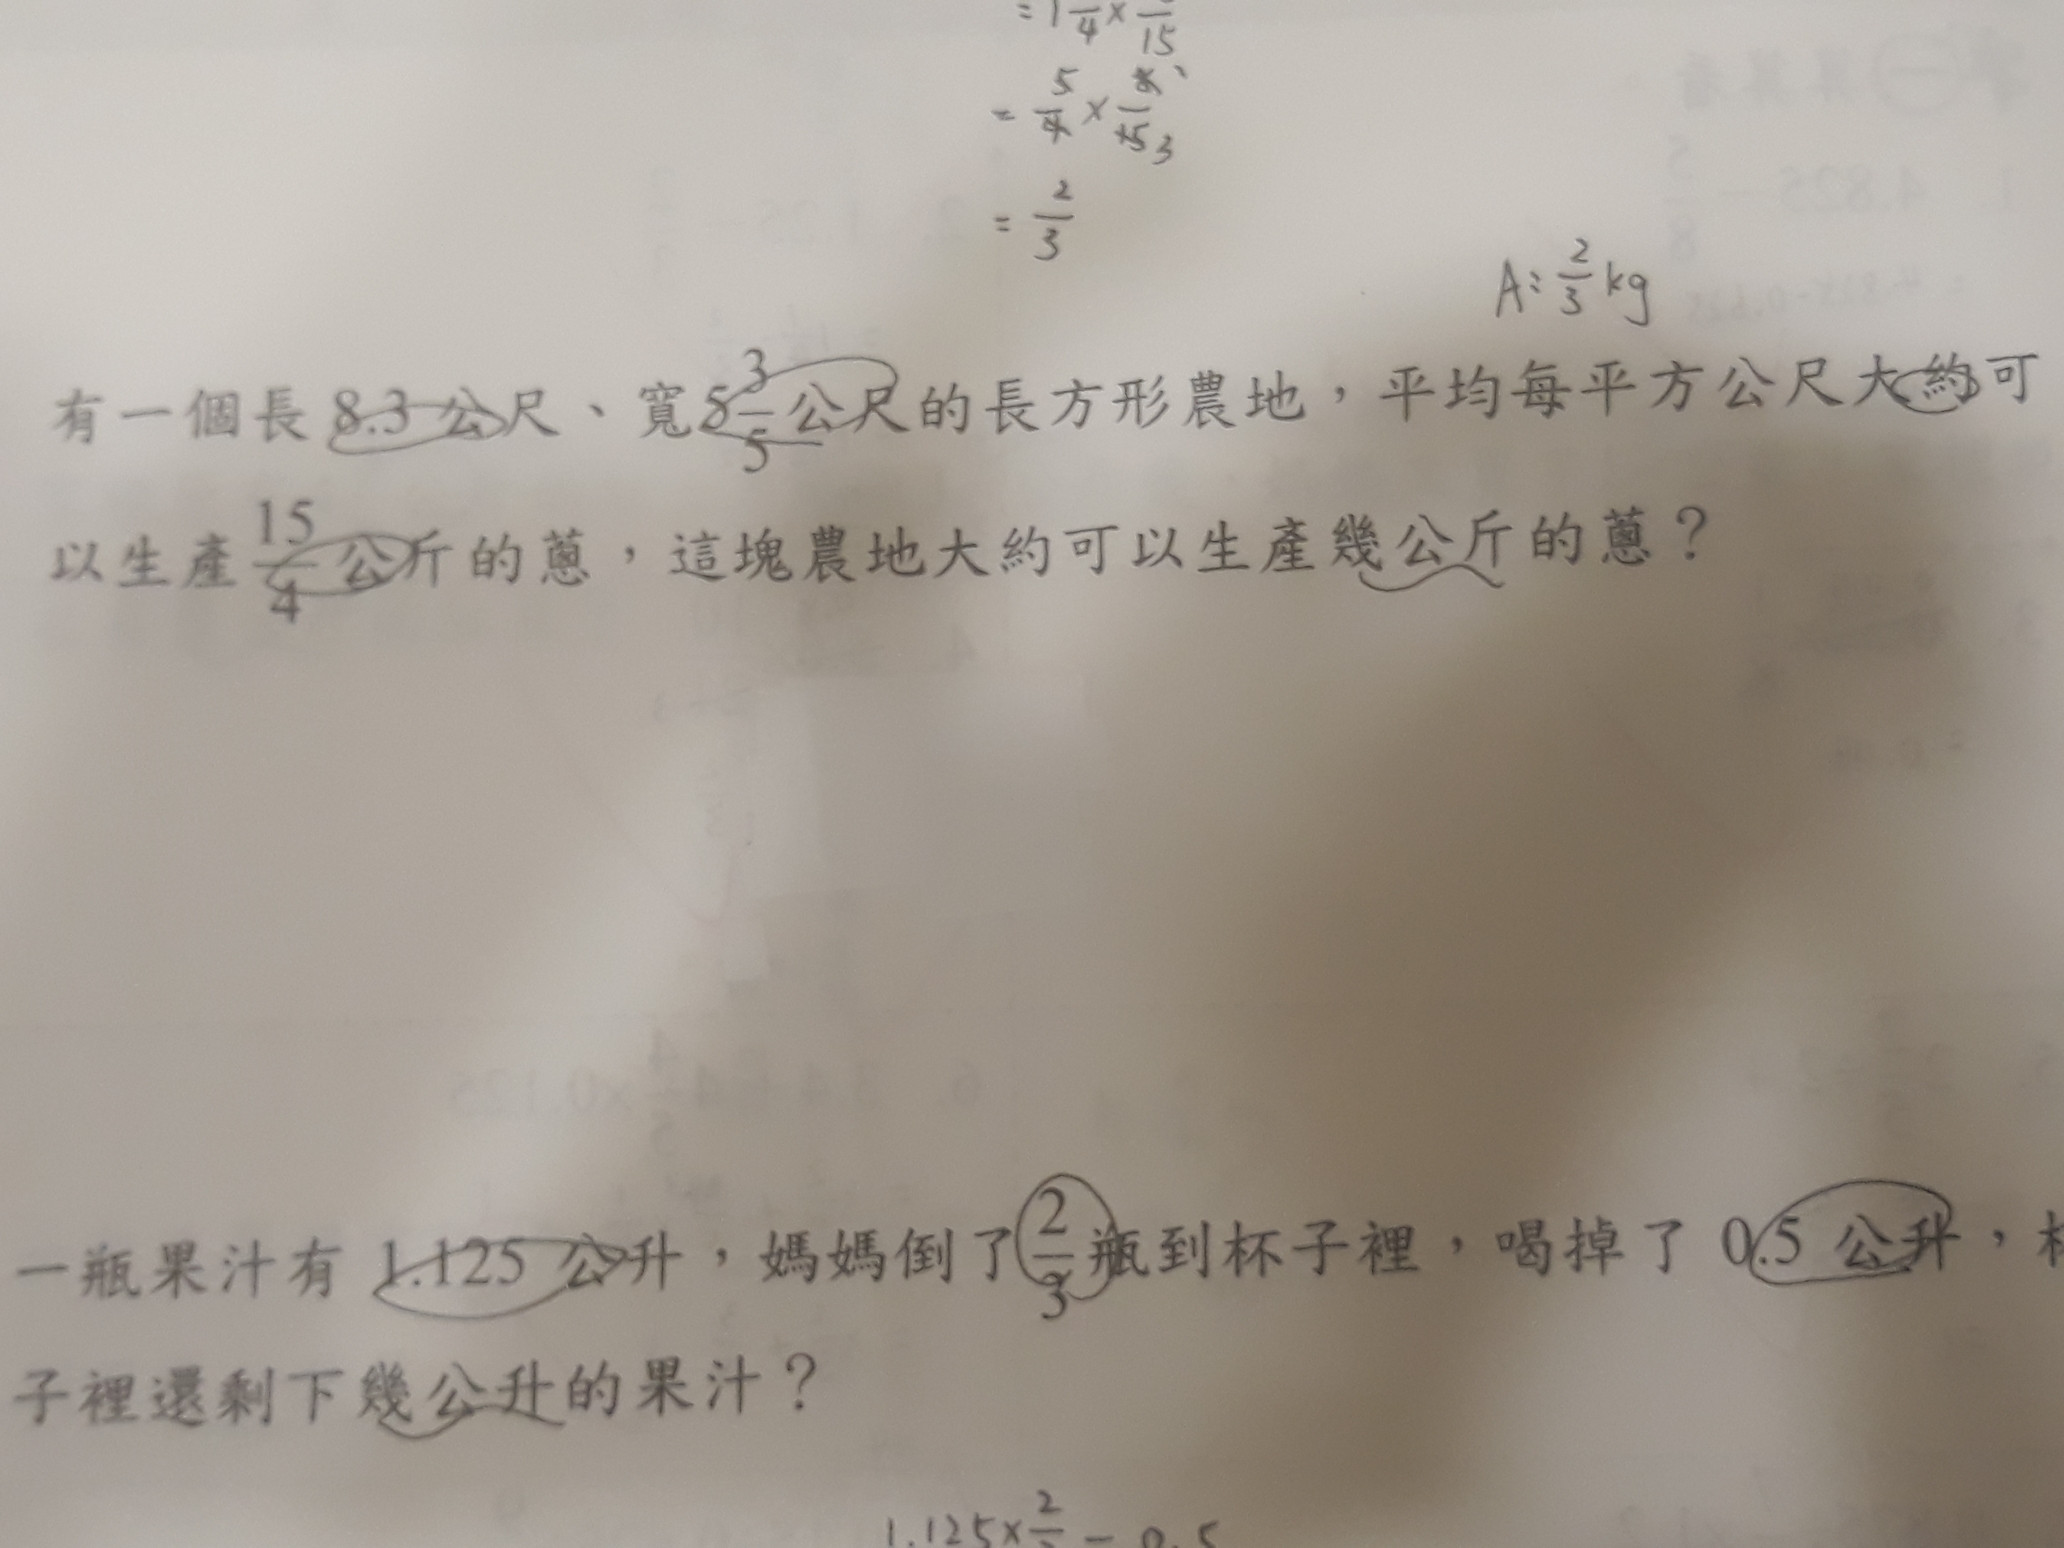 = 1 —/4 × —/15
= 5/4 × 8/15 3
= 2/3
A: 2/3 kg
有一個長 8.3 公尺、寬 5 3/5 公尺的長方形農地，平均每平方公尺大約可
以生產 15/4 公斤的蔥，這塊農地大約可以生產幾公斤的蔥？
一瓶果汁有 1.125 公升，媽媽倒了 2/3 瓶到杯子裡，喝掉了 0.5 公升，杯
子裡還剩下幾公升的果汁？
1.125 × 2/ — 0.5